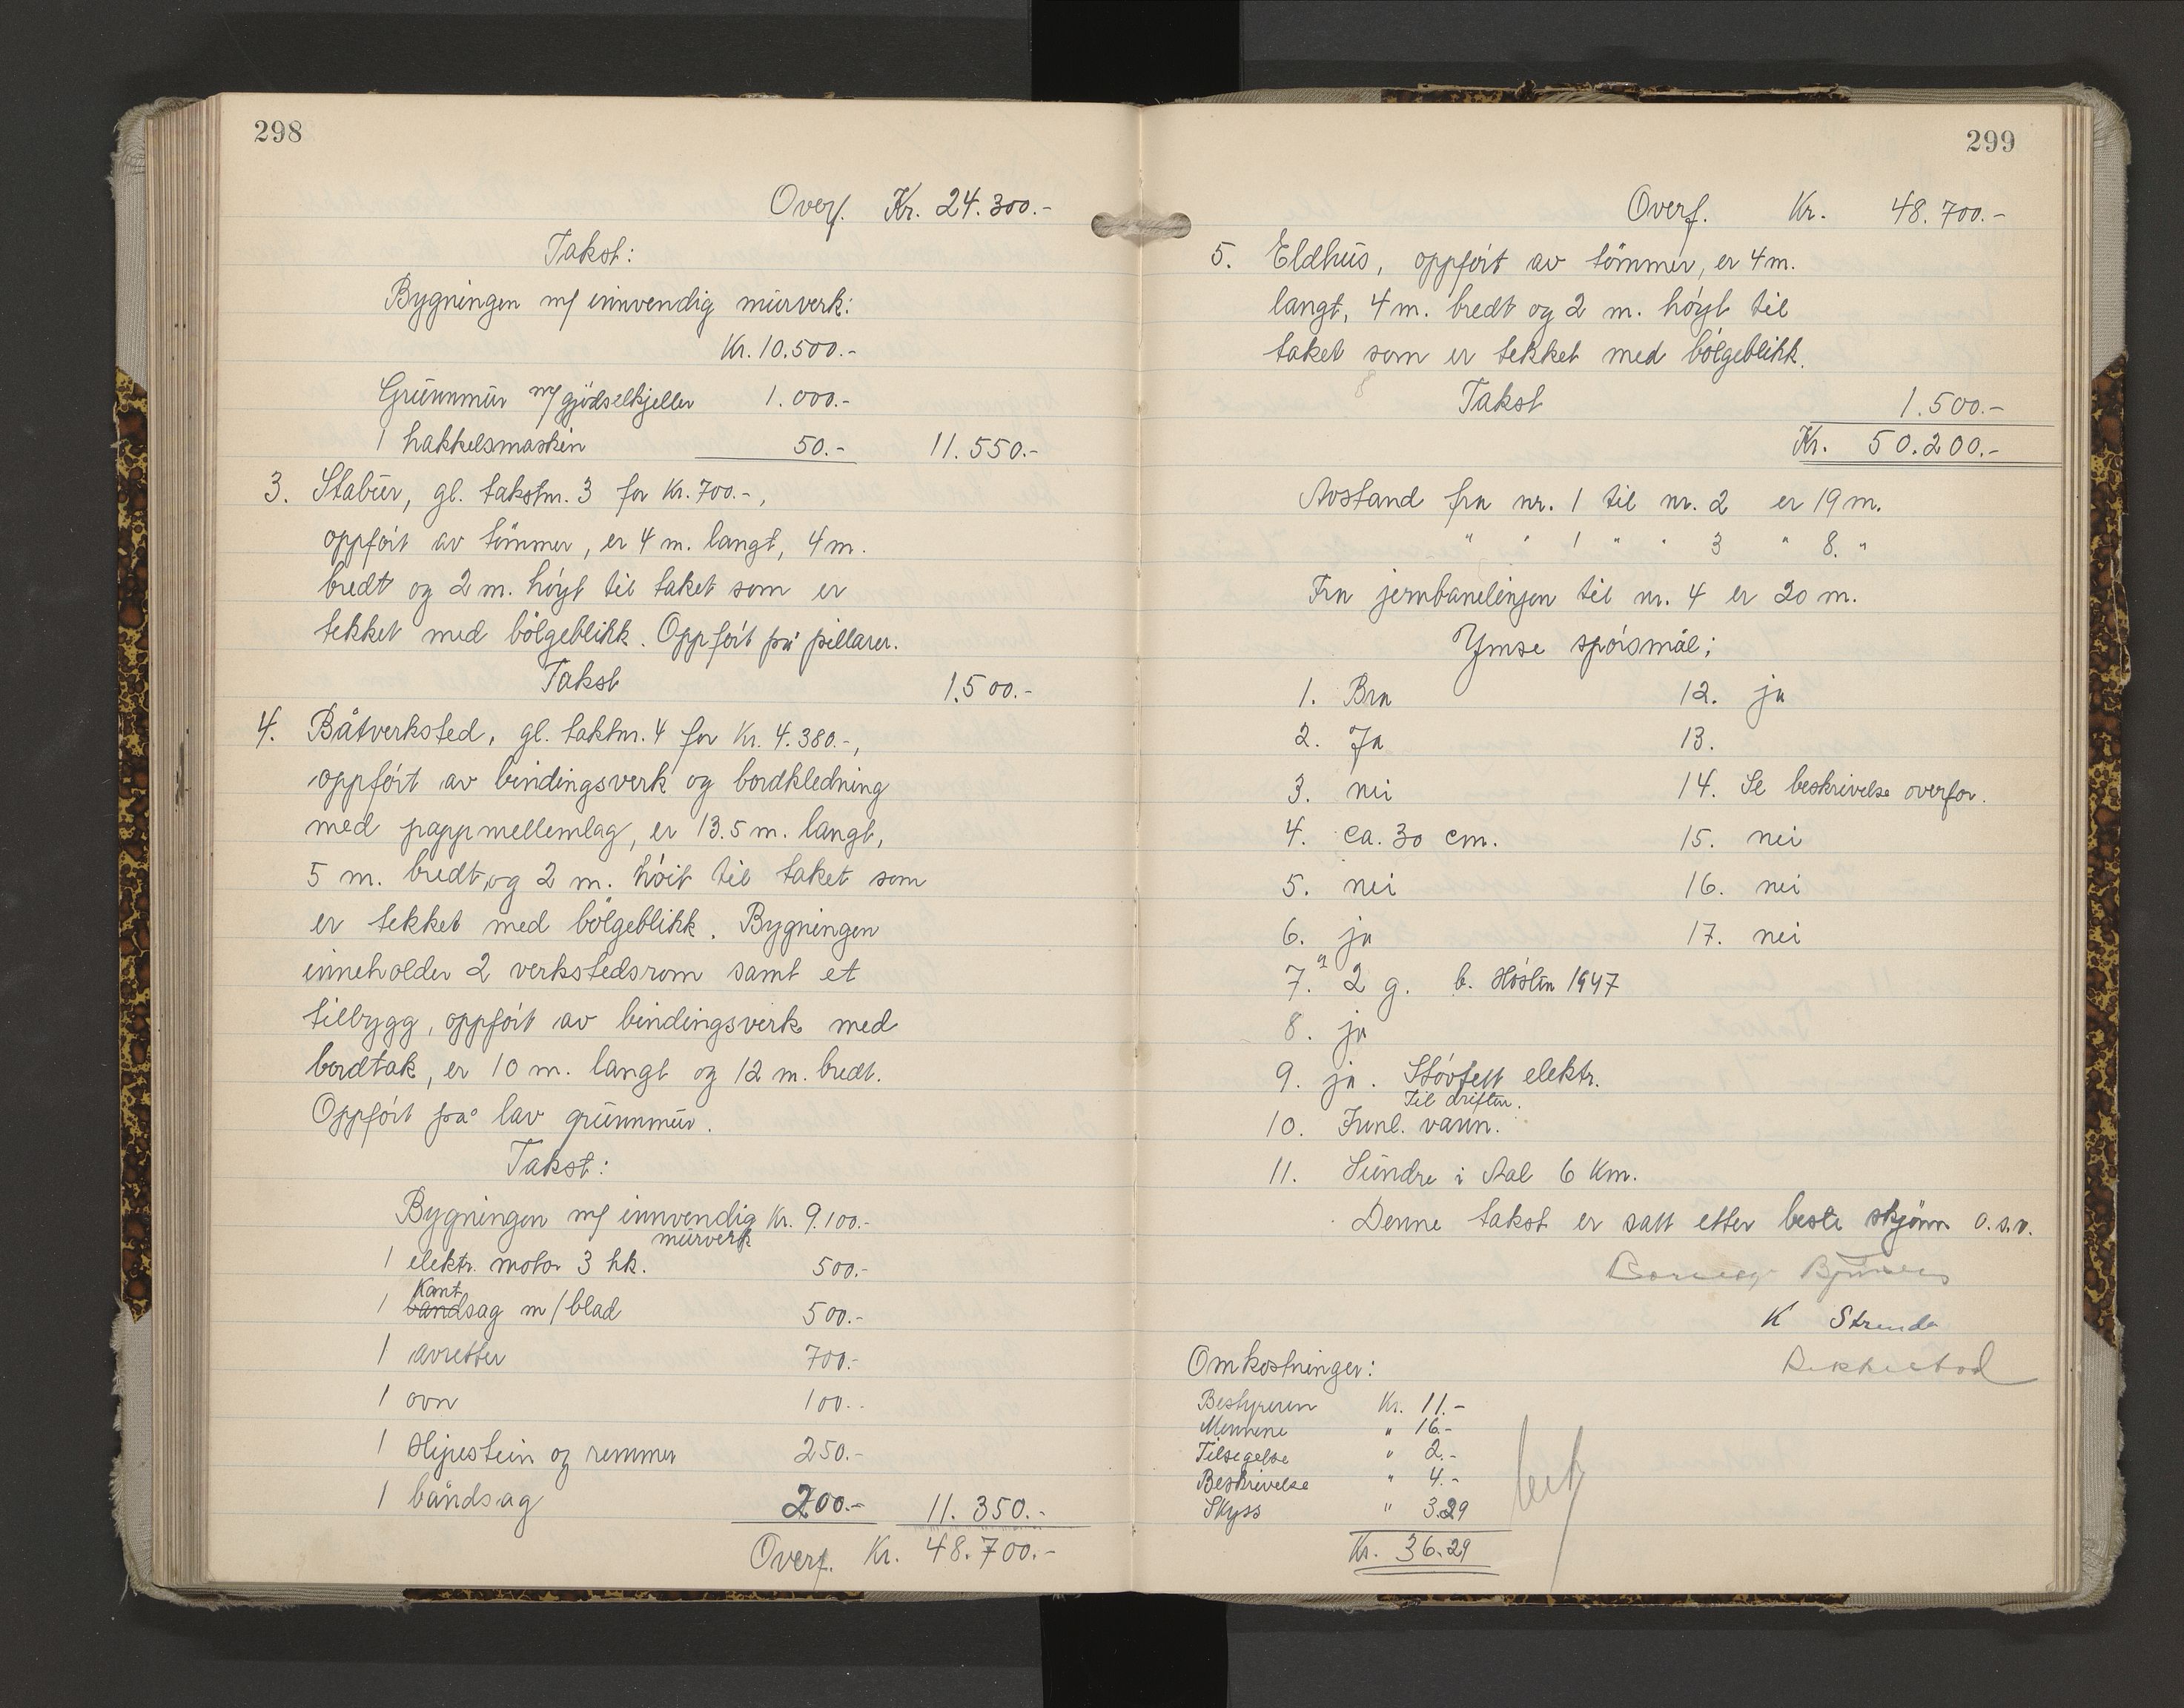 298
Overf. Kr. 24.300.-
Takst:
Bygningen m/ innvendig murverk:
Kr. 10.500.-
Grunnmur m/gjödselkjeller 1.000.-
1 hakkelsmaskin 50.- 11.550.-
3. Stabur, gl. takstnr. 3 for Kr. 700.-,
oppført av tömmer, er 4 m. langt, 4 m.
bredt og 2 m. høyt til taket som er
tekket med bölgeblikk. Oppført på pillarer.
Takst 1.500.-
4. Båtverksted, gl. taktnr. 4 for Kr. 4.380.-,
oppført av bindingsverk og bordkledning
med pappmellemlag, er 13.5 m. langt,
5 m. bredt, og 2 m. høit til taket som
er tekket med bölgeblikk. Bygningen
inneholder 2 verkstedsrom samt et
tilbygg, oppført av bindingsverk med
bordtak, er 10 m. langt og 12 m. bredt.
Oppført på lav grunnmur.
Takst:
Bygningen m/ innvendig Kr. 9.100.-
murverk
1 elektr. motor 3 hk. 500.-
Kant
1 bandsag m/blad 500.-
1 avretter 700.-
1 ovn 100.-
1 slipestein og remmer 250.-
1 båndsag 200.- 11.350.-
Overf. Kr. 48.700.-
299
Overf. Kr. 48.700.-
5. Eldhus, oppført av tömmer, er 4 m.
langt, 4 m. bredt og 2 m. høyt til
taket som er tekket med bölgeblikk.
Takst 1.500.-
Kr. 50.200.-
Avstand fra nr. 1 til nr. 2 er 19 m.
" " 1 " " 3 " 8. "
Fra jernbanelinjen til nr. 4 er 20 m.
Ymse spørsmål:
1. Bra 12. ja
2. Ja 13.
3. nei 14. Se beskrivelse overfor.
4. ca. 30 cm. 15. nei
5. nei 16. nei
6. ja 17. nei
7. a 2 g. b. Høsten 1947
8. ja
9. ja. Støvtett elektr.
Til driften.
10. Innl. vann.
11. Sundre i Aal 6 Km.
Denne takst er satt etter beste skjønn o.s.v.
K Strenda
Omkostninger:
Bestyreren Kr. 11.-
Mennene " 16.-
Tilsigelse " 2.-
Beskrivelse " 4.-
Skyss " 3.29
Kr. 36.29